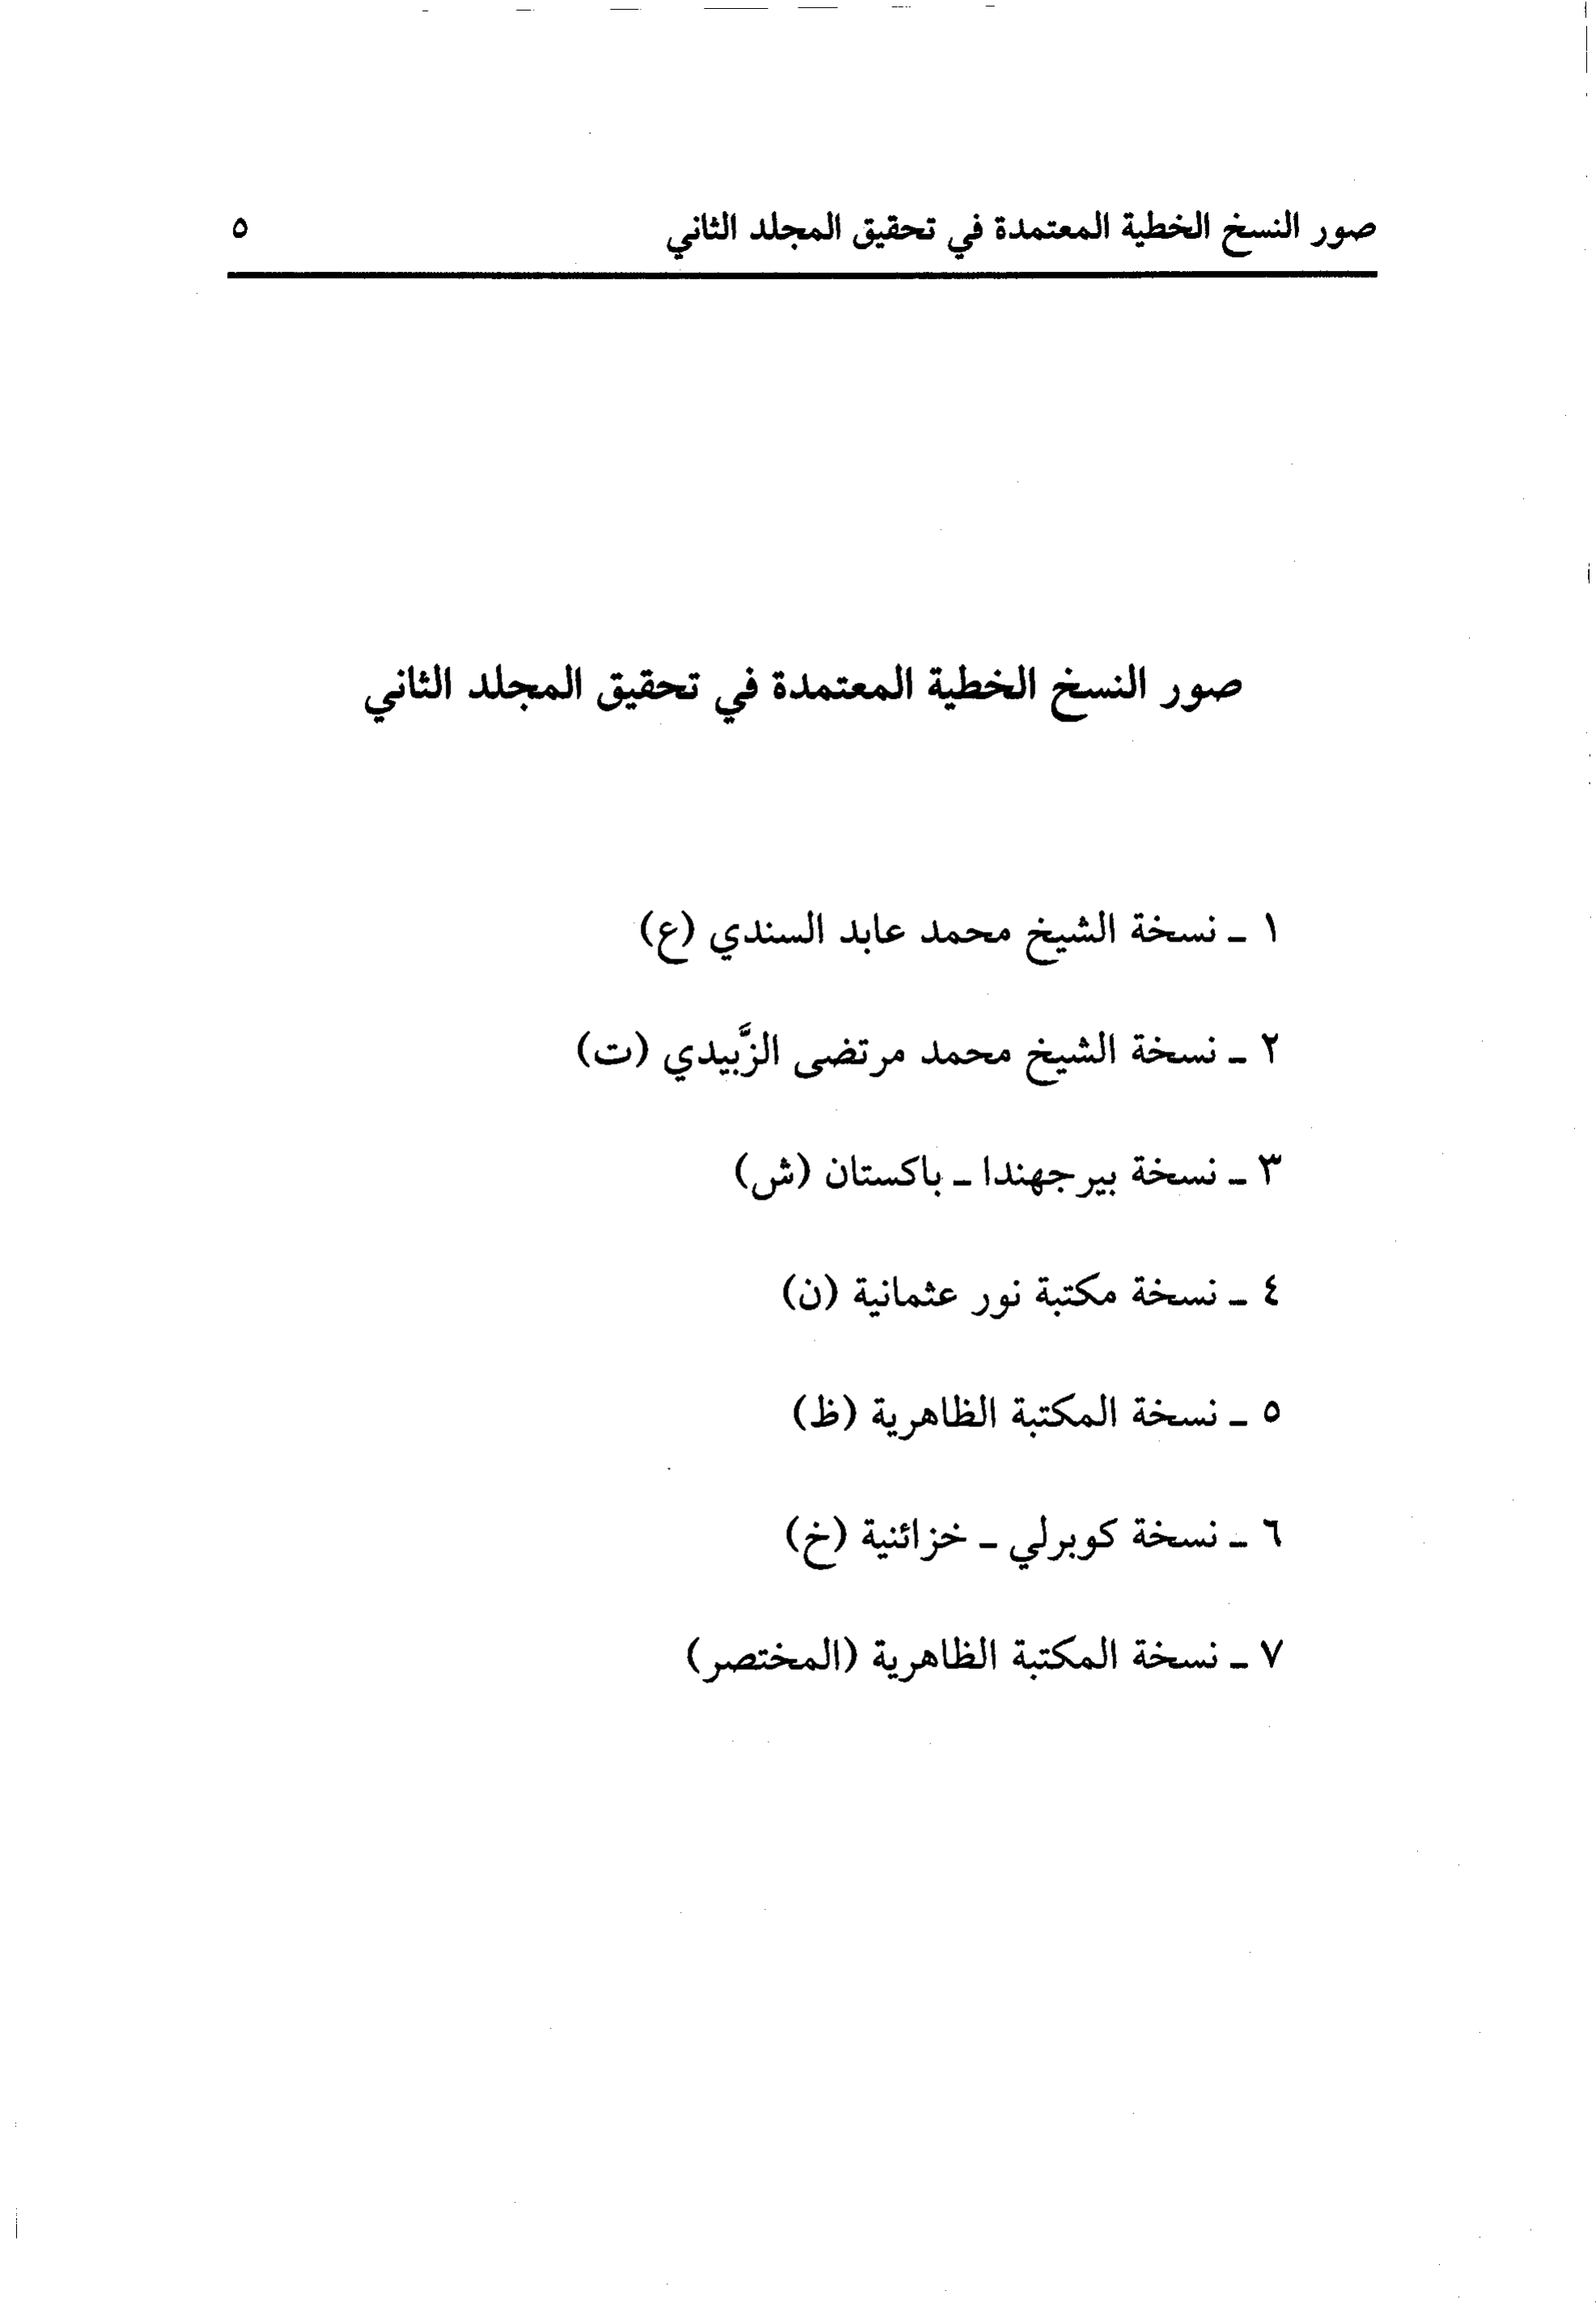 صور النسخ الخطية المعتمدة في تحقيق المجلد الثاني ٥
صور النسخ الخطية المعتمدة في تحقيق المجلد الثاني
١ ـ نسخة الشيخ محمد عابد السندي (ع)
٢ ـ نسخة الشيخ محمد مرتضى الزَّبيدي (ت)
٣ ـ نسخة بيرجهندا ـ باكستان (ش)
٤ ـ نسخة مكتبة نور عثمانية (ن)
٥ ـ نسخة المكتبة الظاهرية (ظ)
٦ ـ نسخة كوبرلي ـ خزائنية (خ)
٧ ـ نسخة المكتبة الظاهرية (المختصر)